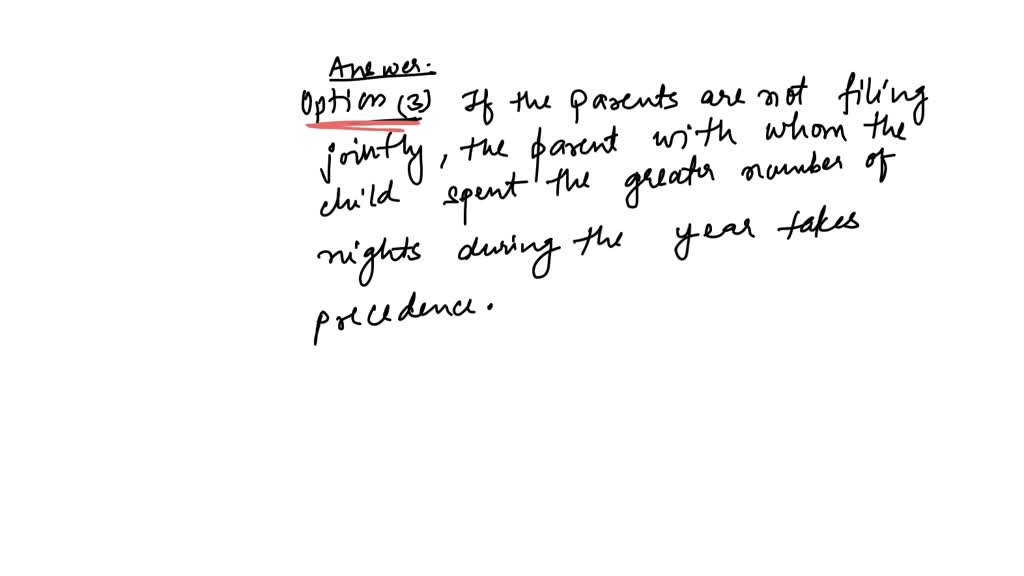 Answer.
Option (3) If the parents are not filing
jointly, the parent with whom the
child spent the greater number of
nights during the year takes
precedence.